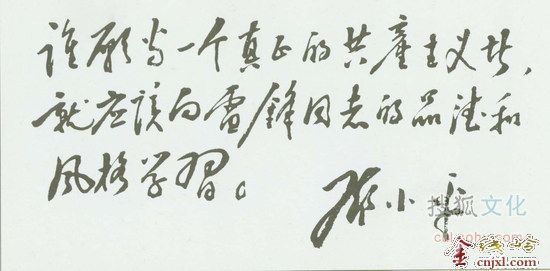 谁愿当一个真正的共产主义者,
就应该向雷锋同志的品德和
风格学习。
邓小平
搜狐文化
cul.sohu.com
cnjxl.com